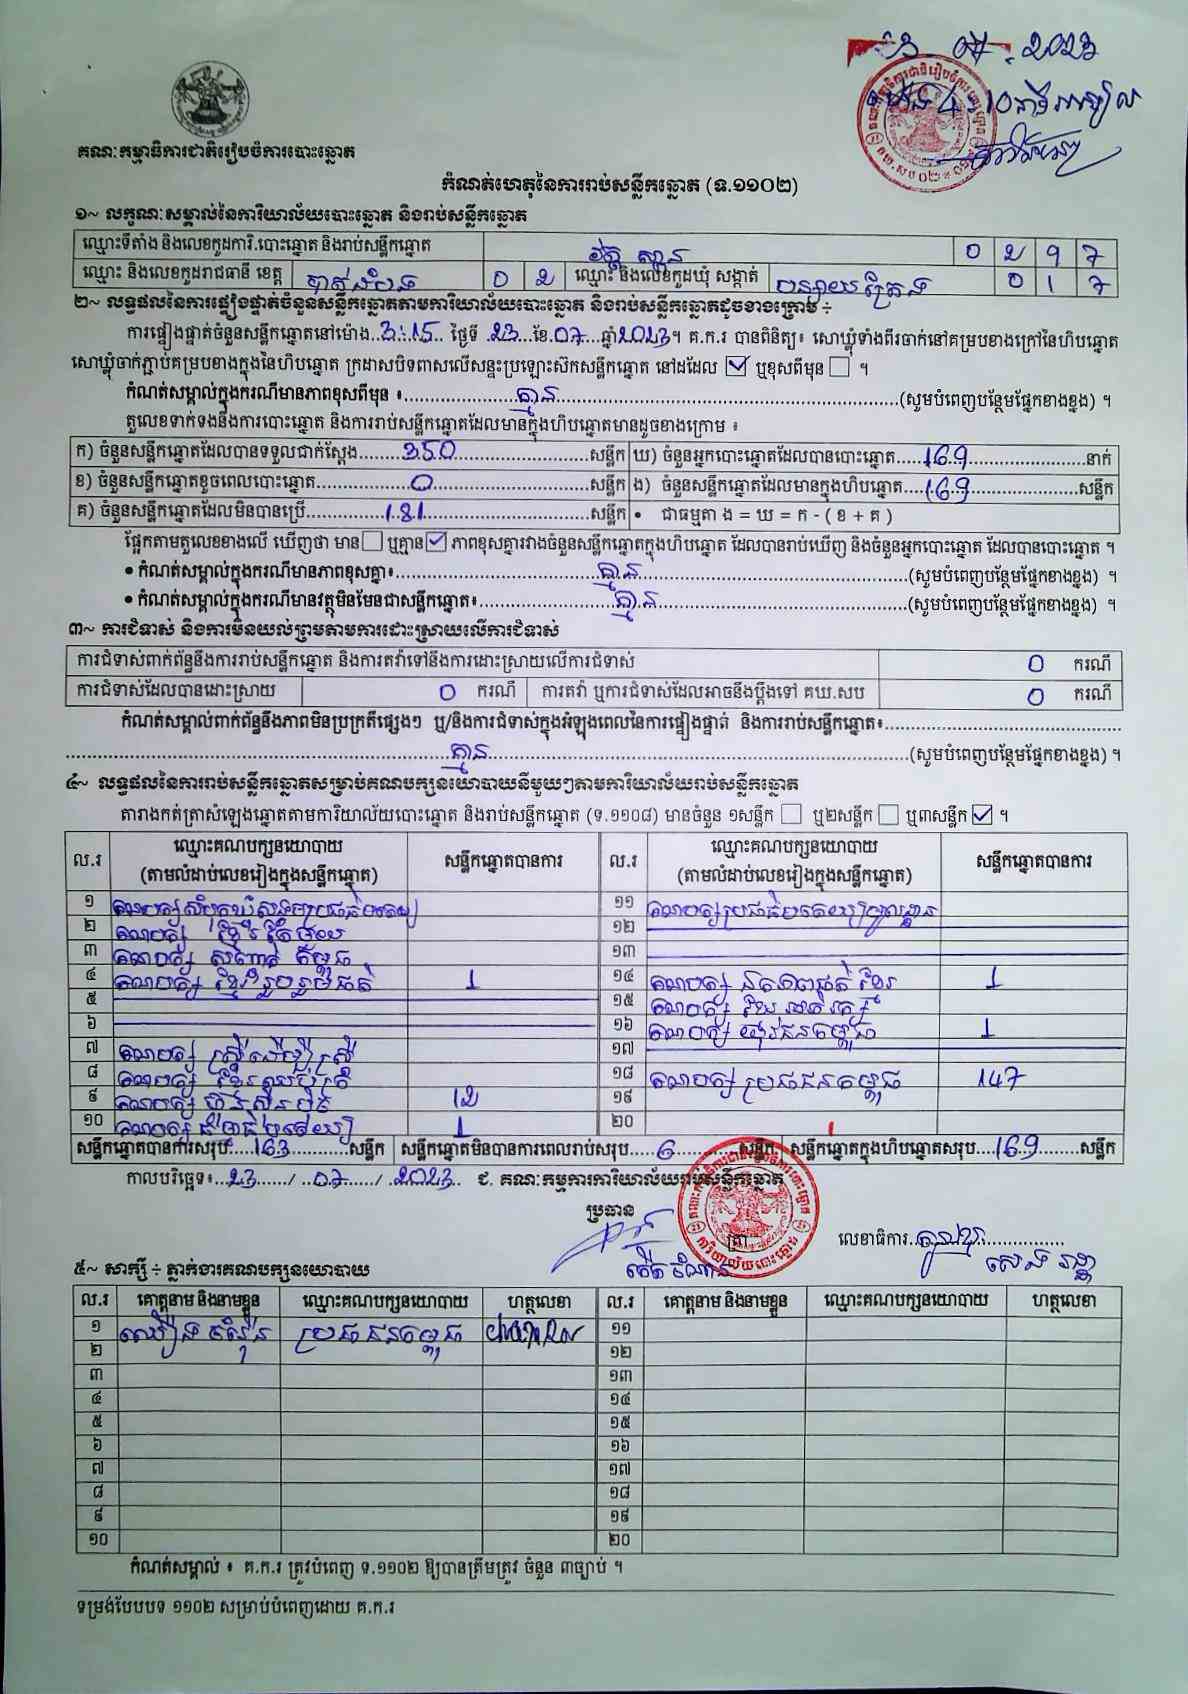 23 07 2023
គណៈកម្មាធិការជាតិរៀបចំការបោះឆ្នោត
កំណត់ហេតុនៃការរាប់សន្លឹកឆ្នោត (ទ.១១០២)
១~ លក្ខណៈសម្គាល់នៃការិយាល័យបោះឆ្នោត និងរាប់សន្លឹកឆ្នោត
ឈ្មោះទីតាំង និងលេខកូដការិ.បោះឆ្នោត និងរាប់សន្លឹកឆ្នោត វត្ត ស្ពាន 0 2 9 7
ឈ្មោះ និងលេខកូដរាជធានី ខេត្ត បាត់ដំបង 0 2 ឈ្មោះ និងលេខកូដឃុំ សង្កាត់ បន្សាយត្រែង 0 1 7
២~ លទ្ធផលនៃការផ្ទៀងផ្ទាត់ចំនួនសន្លឹកឆ្នោតតាមការិយាល័យបោះឆ្នោត និងរាប់សន្លឹកឆ្នោតដូចខាងក្រោម ÷
ការផ្ទៀងផ្ទាត់ចំនួនសន្លឹកឆ្នោតនៅម៉ោង..3:15.. ថ្ងៃទី .23...ខែ.07...ឆ្នាំ2023។ គ.ក.រ បានពិនិត្យ៖ សោឃ្លុំទាំងពីរចាក់នៅគម្របខាងក្រៅនៃហិបឆ្នោត
សោឃ្លុំចាក់ភ្ជាប់គម្របខាងក្នុងនៃហិបឆ្នោត ក្រដាសបិទពាសលើសន្ទះប្រឡោះស៊កសន្លឹកឆ្នោត នៅដដែល ☑ ឬខុសពីមុន ☐ ។
កំណត់សម្គាល់ក្នុងករណីមានភាពខុសពីមុន ៖............គ្មាន............(សូមបំពេញបន្ថែមផ្នែកខាងខ្នង) ។
តួលេខទាក់ទងនឹងការបោះឆ្នោត និងការរាប់សន្លឹកឆ្នោតដែលមានក្នុងហិបឆ្នោតមានដូចខាងក្រោម ៖
ក) ចំនួនសន្លឹកឆ្នោតដែលបានទទួលជាក់ស្តែង........350........សន្លឹក ឃ) ចំនួនអ្នកបោះឆ្នោតដែលបានបោះឆ្នោត.....169........នាក់
ខ) ចំនួនសន្លឹកឆ្នោតខូចពេលបោះឆ្នោត........0........សន្លឹក ង) ចំនួនសន្លឹកឆ្នោតដែលមានក្នុងហិបឆ្នោត....169........សន្លឹក
គ) ចំនួនសន្លឹកឆ្នោតដែលមិនបានប្រើ........181........សន្លឹក • ជាធម្មតា ង = ឃ = ក - ( ខ + គ )
ផ្អែកតាមតួលេខខាងលើ ឃើញថា មាន☐ ឬគ្មាន☑ ភាពខុសគ្នារវាងចំនួនសន្លឹកឆ្នោតក្នុងហិបឆ្នោត ដែលបានរាប់ឃើញ និងចំនួនអ្នកបោះឆ្នោត ដែលបានបោះឆ្នោត ។
• កំណត់សម្គាល់ក្នុងករណីមានភាពខុសគ្នា៖............គ្មាន............(សូមបំពេញបន្ថែមផ្នែកខាងខ្នង) ។
• កំណត់សម្គាល់ក្នុងករណីមានវត្ថុមិនមែនជាសន្លឹកឆ្នោត៖............គ្មាន............(សូមបំពេញបន្ថែមផ្នែកខាងខ្នង) ។
៣~ ការជំទាស់ និងការមិនយល់ព្រមតាមការដោះស្រាយលើការជំទាស់
ការជំទាស់ពាក់ព័ន្ធនឹងការរាប់សន្លឹកឆ្នោត និងការតវ៉ាទៅនឹងការដោះស្រាយលើការជំទាស់ 0 ករណី
ការជំទាស់ដែលបានដោះស្រាយ 0 ករណី ការតវ៉ា ឬការជំទាស់ដែលអាចនឹងប្តឹងទៅ គឃ.សប 0 ករណី
កំណត់សម្គាល់ពាក់ព័ន្ធនឹងភាពមិនប្រក្រតីផ្សេងៗ ឬ/និងការជំទាស់ក្នុងអំឡុងពេលនៃការផ្ទៀងផ្ទាត់ និងការរាប់សន្លឹកឆ្នោត៖............
............គ្មាន............(សូមបំពេញបន្ថែមផ្នែកខាងខ្នង) ។
៤~ លទ្ធផលនៃការរាប់សន្លឹកឆ្នោតសម្រាប់គណបក្សនយោបាយនីមួយៗតាមការិយាល័យរាប់សន្លឹកឆ្នោត
តារាងកត់ត្រាសំឡេងឆ្នោតតាមការិយាល័យបោះឆ្នោត និងរាប់សន្លឹកឆ្នោត (ទ.១១០៨) មានចំនួន ១សន្លឹក ☐ ឬ២សន្លឹក ☐ ឬ៣សន្លឹក ☑ ។
ល.រ ឈ្មោះគណបក្សនយោបាយ (តាមលំដាប់លេខរៀងក្នុងសន្លឹកឆ្នោត) សន្លឹកឆ្នោតបានការ ល.រ ឈ្មោះគណបក្សនយោបាយ (តាមលំដាប់លេខរៀងក្នុងសន្លឹកឆ្នោត) សន្លឹកឆ្នោតបានការ
១ គណបក្សសំបុកឃ្មុំសង្គមប្រជាធិបតេយ្យ ១១ គណបក្សប្រជាធិបតេយ្យមូលដ្ឋាន
២ គណបក្ស ខ្មែរតែមួយ ១២
៣ គណបក្ស សញ្ជាតិ កម្ពុជា ១៣
៤ គណបក្ស ខ្មែររួបរួមជាតិ 1 ១៤ គណបក្ស ឯកភាពជាតិ ខ្មែរ 1
៥ ១៥ គណបក្ស ខ្មែរ អភិរក្ស
៦ ១៦ គណបក្ស យុវជនកម្ពុជា 1
៧ គណបក្ស ស្ត្រីដើម្បីស្ត្រី ១៧
៨ គណបក្ស ខ្មែរឈប់ក្រ ១៨ គណបក្ស ប្រជាជនកម្ពុជា 147
៩ គណបក្ស ហ៊្វុនស៊ិនប៉ិច 12 ១៩
១០ គណបក្ស ធម្មាធិបតេយ្យ 1 ២០
សន្លឹកឆ្នោតបានការសរុប.....163.........សន្លឹក សន្លឹកឆ្នោតមិនបានការពេលរាប់សរុប.....6........សន្លឹក សន្លឹកឆ្នោតក្នុងហិបឆ្នោតសរុប....169........សន្លឹក
កាលបរិច្ឆេទ៖..23....../..07...../..2023.. ជ. គណៈកម្មការការិយាល័យរាប់សន្លឹកឆ្នោត
ប្រធាន
ត្រា លេខាធិការ
សេង រដ្ឋា
៥~ សាក្សី ÷ ភ្នាក់ងារគណបក្សនយោបាយ
ល.រ គោត្តនាម និងនាមខ្លួន ឈ្មោះគណបក្សនយោបាយ ហត្ថលេខា ល.រ គោត្តនាម និងនាមខ្លួន ឈ្មោះគណបក្សនយោបាយ ហត្ថលេខា
១ ប្រជាជនកម្ពុជា ១១
២ ១២
៣ ១៣
៤ ១៤
៥ ១៥
៦ ១៦
៧ ១៧
៨ ១៨
៩ ១៩
១០ ២០
កំណត់សម្គាល់ ៖ គ.ក.រ ត្រូវបំពេញ ទ.១១០២ ឱ្យបានត្រឹមត្រូវ ចំនួន ៣ច្បាប់ ។
ទម្រង់បែបបទ ១១០២ សម្រាប់បំពេញដោយ គ.ក.រ